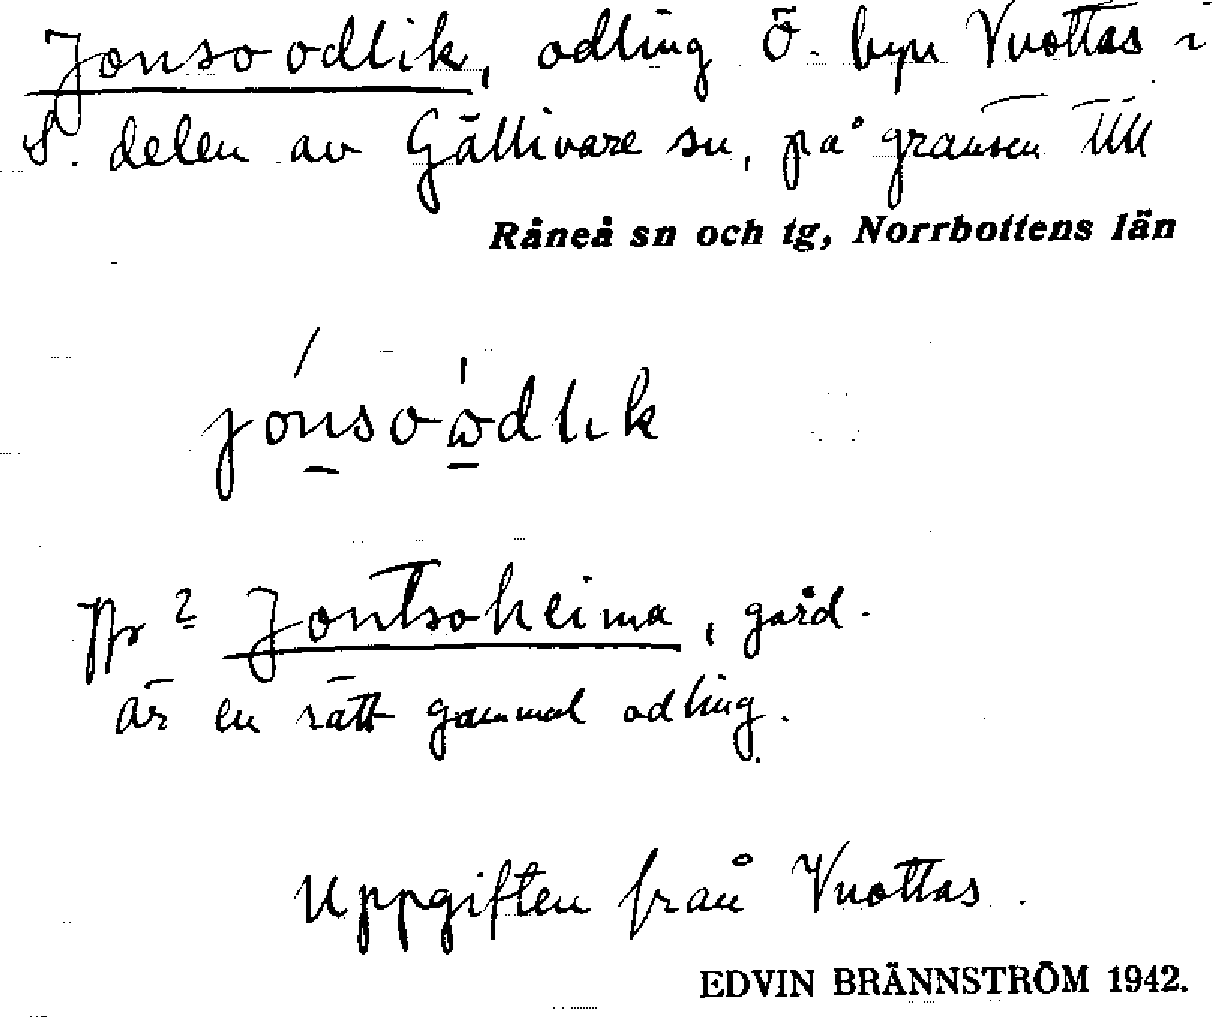 Jonsoodlik, odling Ö. byn Vuottas i
S. delen av Gällivare sn, på gränsen till
Råneå sn och tg, Norrbottens län
jónsoòdlik
Jfr ? Jontsoheima, gård.
är en rätt gammal odling.
Uppgiften från Vuottas.
EDVIN BRÄNNSTRÖM 1942.